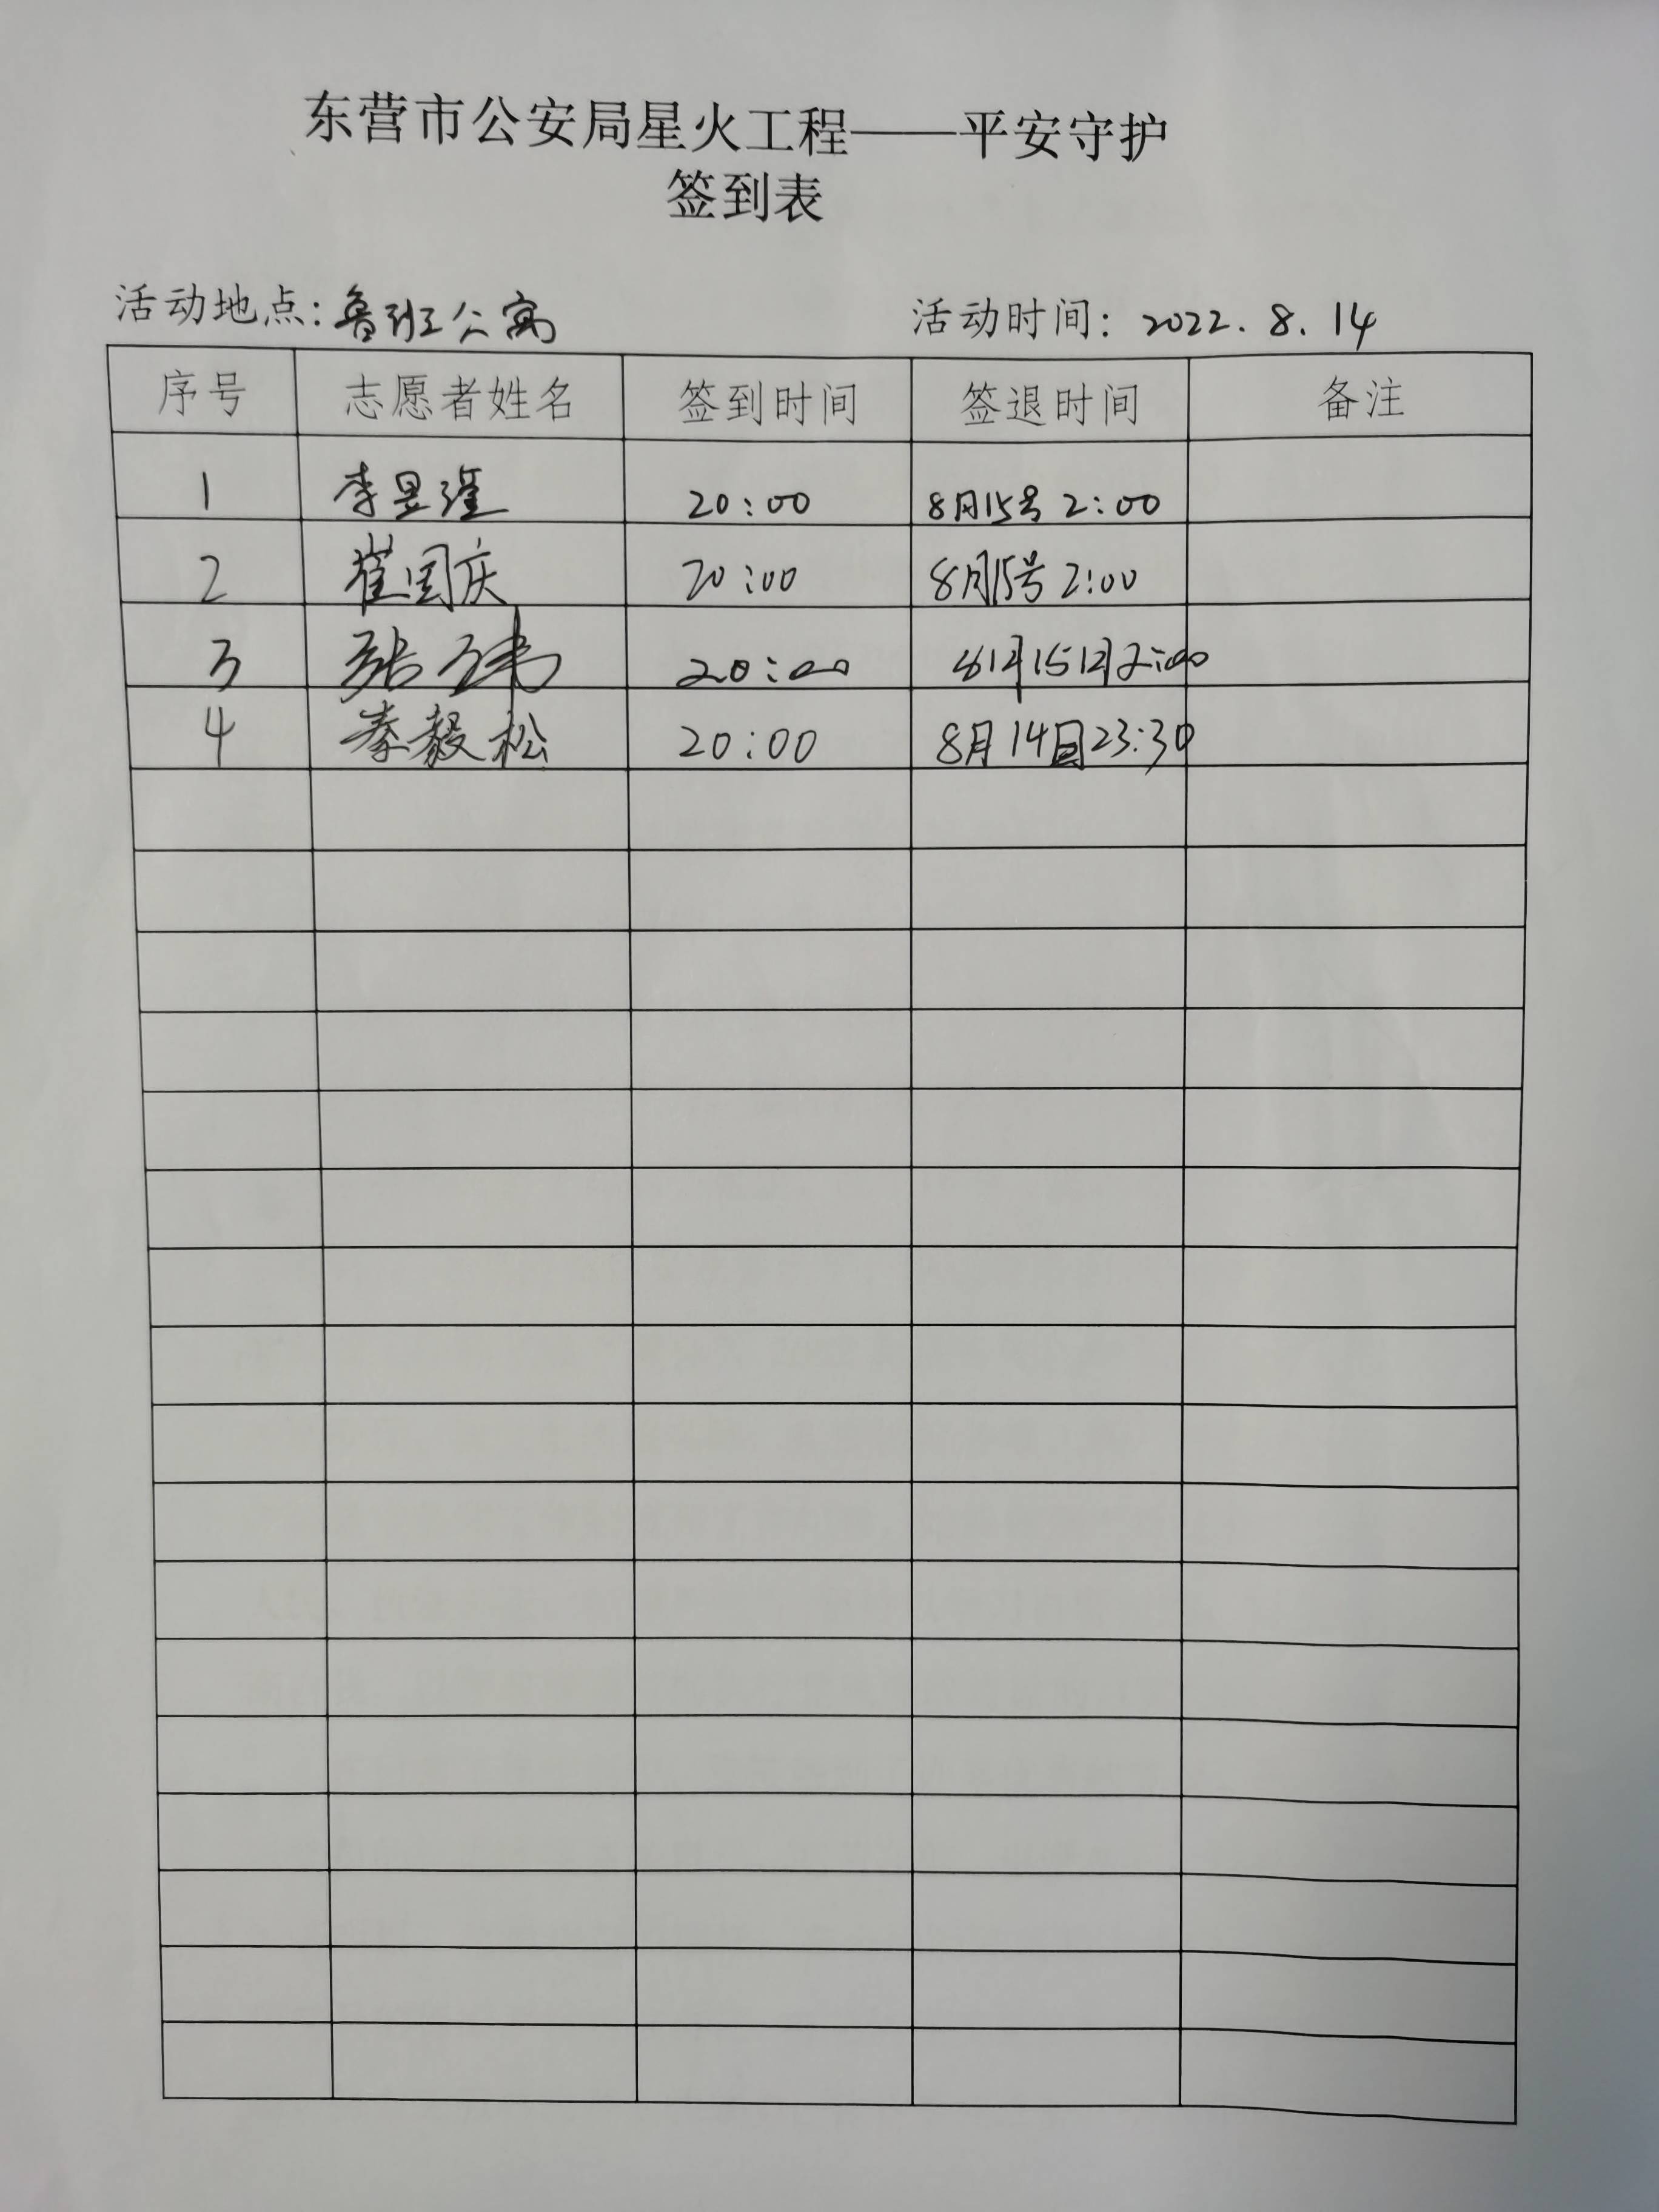 东营市公安局星火工程——平安守护
签到表
活动地点：鲁班公寓 活动时间：2022.8.14
序号 志愿者姓名 签到时间 签退时间 备注
1 李昱瑾 20:00 8月15号 2:00
2 崔国庆 20:00 8月15号 2:00
3 张 20:00 8月15日2:00
4 秦毅松 20:00 8月14日23:30